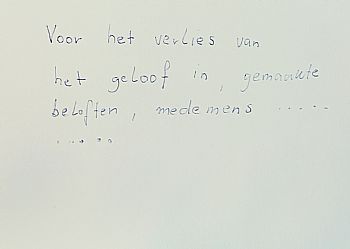 Voor het verlies van
het geloof in, gemaakte
beloften, medemens .....
.....